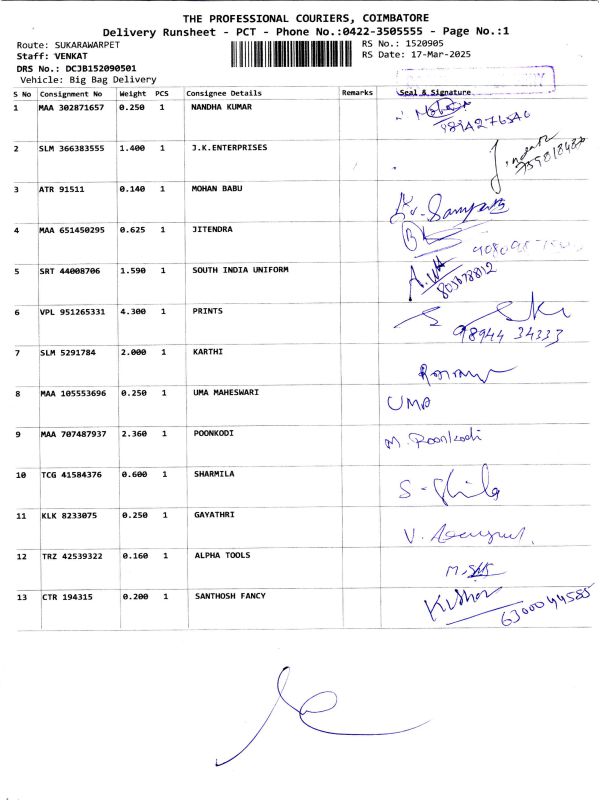 THE PROFESSIONAL COURIERS, COIMBATORE
Delivery Runsheet - PCT - Phone No.:0422-3505555 - Page No.:1
Route: SUKARAWARPET RS No.: 1520905
Staff: VENKAT RS Date: 17-Mar-2025
DRS No.: DCJB152090501
Vehicle: Big Bag Delivery
S No Consignment No Weight PCS Consignee Details Remarks Seal & Signature
1 MAA 302871657 0.250 1 NANDHA KUMAR
9894276540
2 SLM 366383555 1.400 1 J.K.ENTERPRISES
3 ATR 91511 0.140 1 MOHAN BABU
4 MAA 651450295 0.625 1 JITENDRA
5 SRT 44008706 1.590 1 SOUTH INDIA UNIFORM
6 VPL 951265331 4.300 1 PRINTS
98944 34333
7 SLM 5291784 2.000 1 KARTHI
8 MAA 105553696 0.250 1 UMA MAHESWARI
UMA
9 MAA 707487937 2.360 1 POONKODI M. Poonkodi
10 TCG 41584376 0.600 1 SHARMILA
11 KLK 8233075 0.250 1 GAYATHRI
12 TRZ 42539322 0.160 1 ALPHA TOOLS
13 CTR 194315 0.200 1 SANTHOSH FANCY Kishor
6300044585